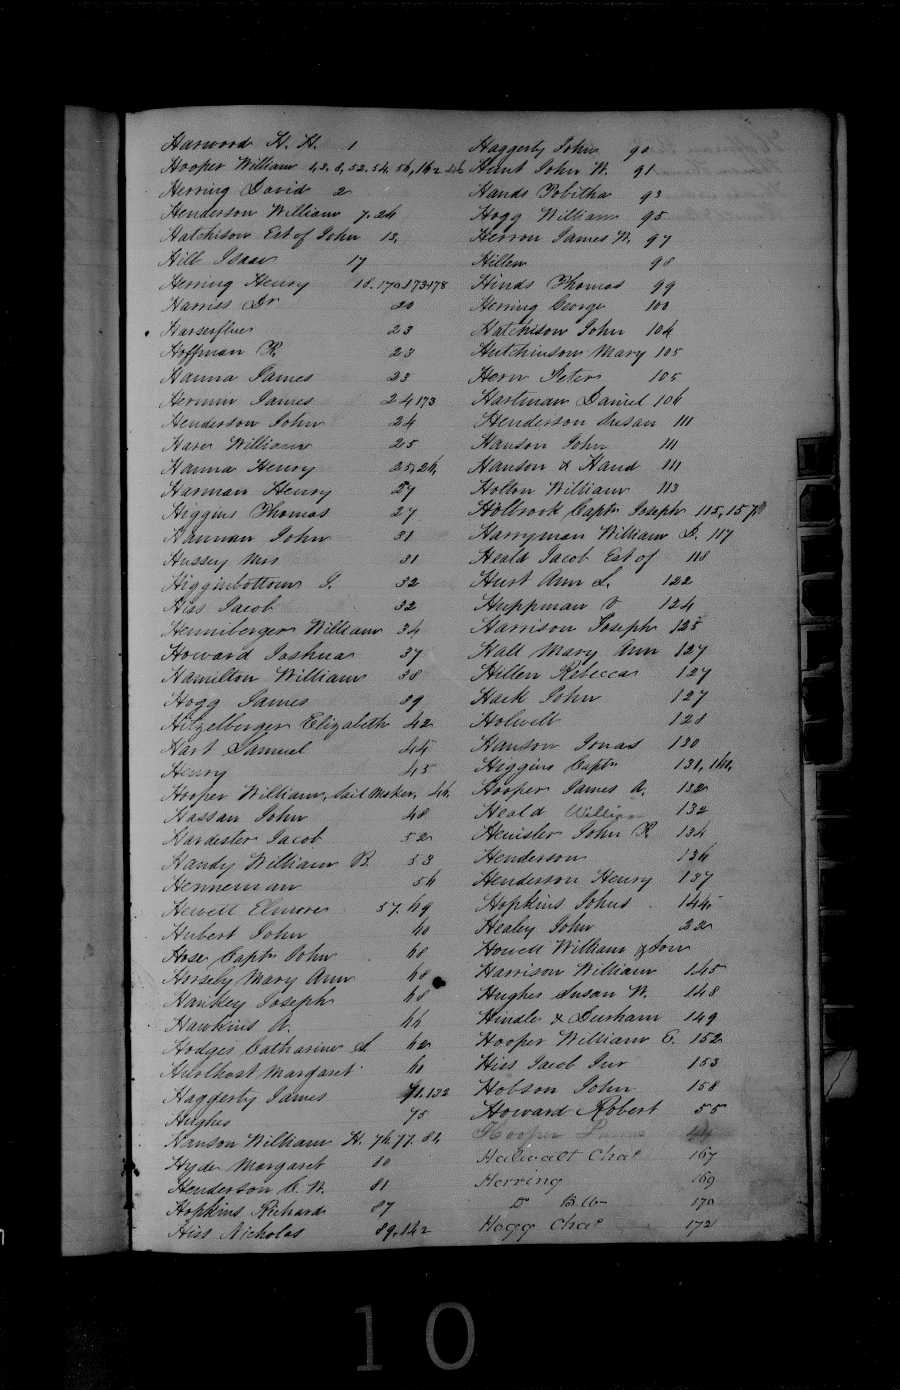 Harwood H. H. 1
Hooper William
Herring David 2
Henderson William 7. 26
Hatchison Est of John 13,
Hill Isaac 17
Herring Henry 18. 170. 173. 178
Harriss Dr 20
23
Hoffman R. 23
Hanna James 23
James 24 173
Henderson John 24
Hare William 25
Hanna Henry 25, 26,
Harman Henry 27
Higgins Thomas 27
Hannan John 31
Hussey Mrs 31
Higginbottom T. 32
Hiss Jacob 32
Henniberger William 34
Howard Joshua 37
Hamilton William 38
Hogg James 39
Hitzelberger Elizabeth 42
Hart Samuel
Henry 45
Hooper William, Sail Maker, 46
Hassan John 48
Hardester Jacob 52
Handy William B. 53
Henneman 56
Hewett Elmore 57. 69
Hubert John 60
Hose Captn John 68
Horseby Mary Ann 68
Hankey Joseph 68
Hawkins A. 66
Hodges Catharine S. 62
Hurlhost Margaret 61
Haggerty James 132
Hughes 75
Hanson William H. 76. 77. 86
Hyde Margaret 80
Henderson C. W. 81
Hopkins Richard 87
Hiss Nicholas 89. 142
Haggerty John 90
Hunt John W. 91
Hands Tobitha 93
Hogg William 95
Herron James W. 97
Hillen 98
Hinds Thomas 99
Herring George 100
Hatchison John 104
Hutchinson Mary 105
Hern Peter 105
Hartman Daniel 106
Henderson Susan 111
Hanson John 111
Hanson & Hand 111
Holton William 113
Holbrook Captn Joseph 115, 157
Harryman William D. 117
Heald Jacob Est of 118
Hurst Ann L. 122
Huppman V 124
Harrison Joseph 125
Hall Mary Ann 127
Hillen Rebecca 127
Hack John 127
Holwell 128
Hanson Jonas 130
Higgins Captn 131, 161,
Hooper James A. 132
Heald William 132
Heuisler John R. 134
Henderson 136
Henderson Henry 137
Hopkins Johns 144
Healey John 22
Howell William & Son
Harrison William 145
Hughes Susan W. 148
Hindle & Durham 149
Hooper William E. 152
Hiss Jacob Jur 153
Hobson John 158
Howard Robert 55
Hooper 44
Halwalt Chas 167
Herring 169
Do 170
Hogg Chas 172
10